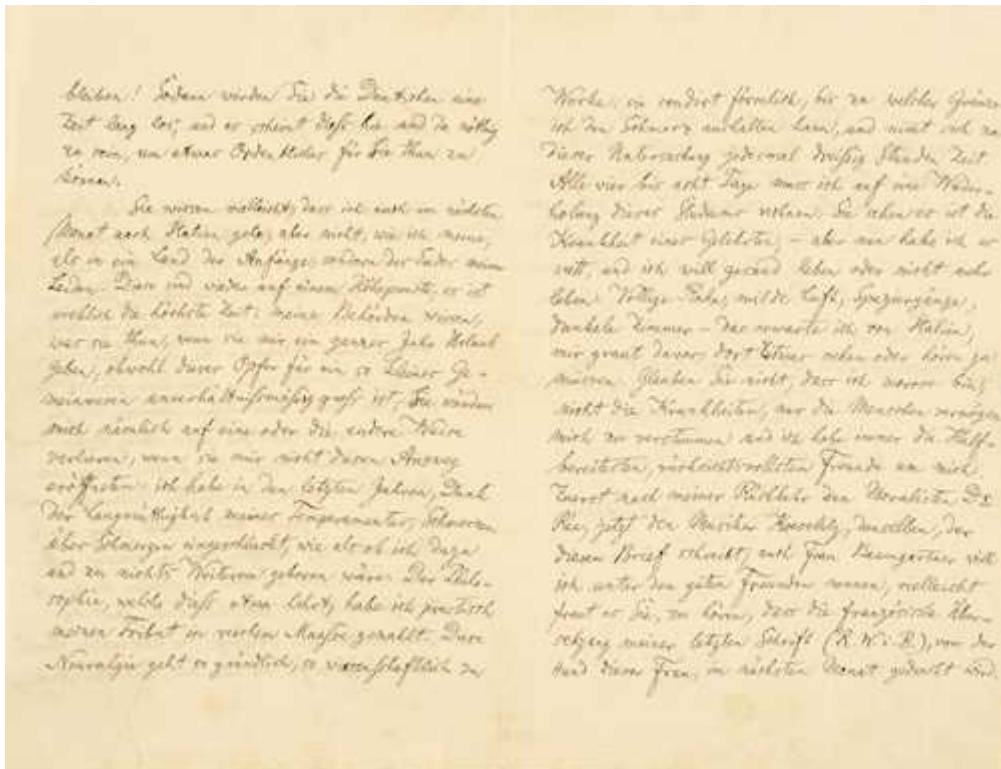 bleiben! Sodann würden Sie die Deutschen eine
Zeit lang los; und es scheint diess hie und da nöthig
zu sein, um etwas Ordentliches für Sie thun zu
können.
Sie wissen vielleicht, dass ich auch im nächsten
Monat nach Italien gehe, aber nicht, wie ich meine,
als in ein Land der Anfänge, sondern der Ende meiner
Leiden. Diese sind wieder auf einem Höhepuncte; es ist
wirklich die höchste Zeit: meine Behörden wissen,
was sie thun, wenn sie mir ein ganzes Jahr Urlaub
geben, obwohl dieses Opfer für ein so kleines Ge-
meinwesen unverhältnissmässig gross ist; sie würden
mich nämlich auf eine oder die andere Weise
verlieren, wenn sie mir nicht diesen Ausweg
eröffneten: ich habe in den letzten Jahren, Dank
der Langmüthigkeit meines Temperamentes, Schmerzen
über Schmerzen eingeschluckt, wie als ob ich dazu
und zu nichts Weiterem geboren wäre. Der Philo-
sophie, welche diess etwa lehrt, habe ich practisch
meinen Tribut in reichem Maasse gezahlt. Diese
Neuralgie geht so gründlich, so wissenschaftlich zu
Werke, sie sondirt förmlich, bis zu welcher Gränze
ich den Schmerz aushalten kann, und nimmt sich zu
dieser Untersuchung jedesmal dreissig Stunden Zeit.
Alle vier bis acht Tage muss ich auf eine Wieder-
holung dieses Studiums rechnen. Sie sehen es ist die
Krankheit eines Gelehrten; – aber nun habe ich es
satt, und ich will gesund leben oder nicht mehr
leben. Völlige Ruhe, milde Luft, Spaziergänge,
dunkele Zimmer – das erwarte ich von Italien;
mir graut davor, dort Etwas sehen oder hören zu
müssen. Glauben Sie nicht, dass ich morose bin;
nicht die Krankheiten, nur die Menschen vermögen
mich zu verstimmen und ich habe immer die hülf-
bereitesten, rücksichtsvollsten Freunde um mich.
Zuerst nach meiner Rückkehr den Moralisten Dr.
Rée, jetzt den Musiker Koeselitz, denselben, der
diesen Brief schreibt; auch Frau Baumgartner will
ich unter den guten Freunden nennen; vielleicht
freut es Sie, zu hören, dass die französische Über-
setzung meiner letzten Schrift (R. W. i. B.), von der
Hand dieser Frau, im nächsten Monat gedruckt wird.